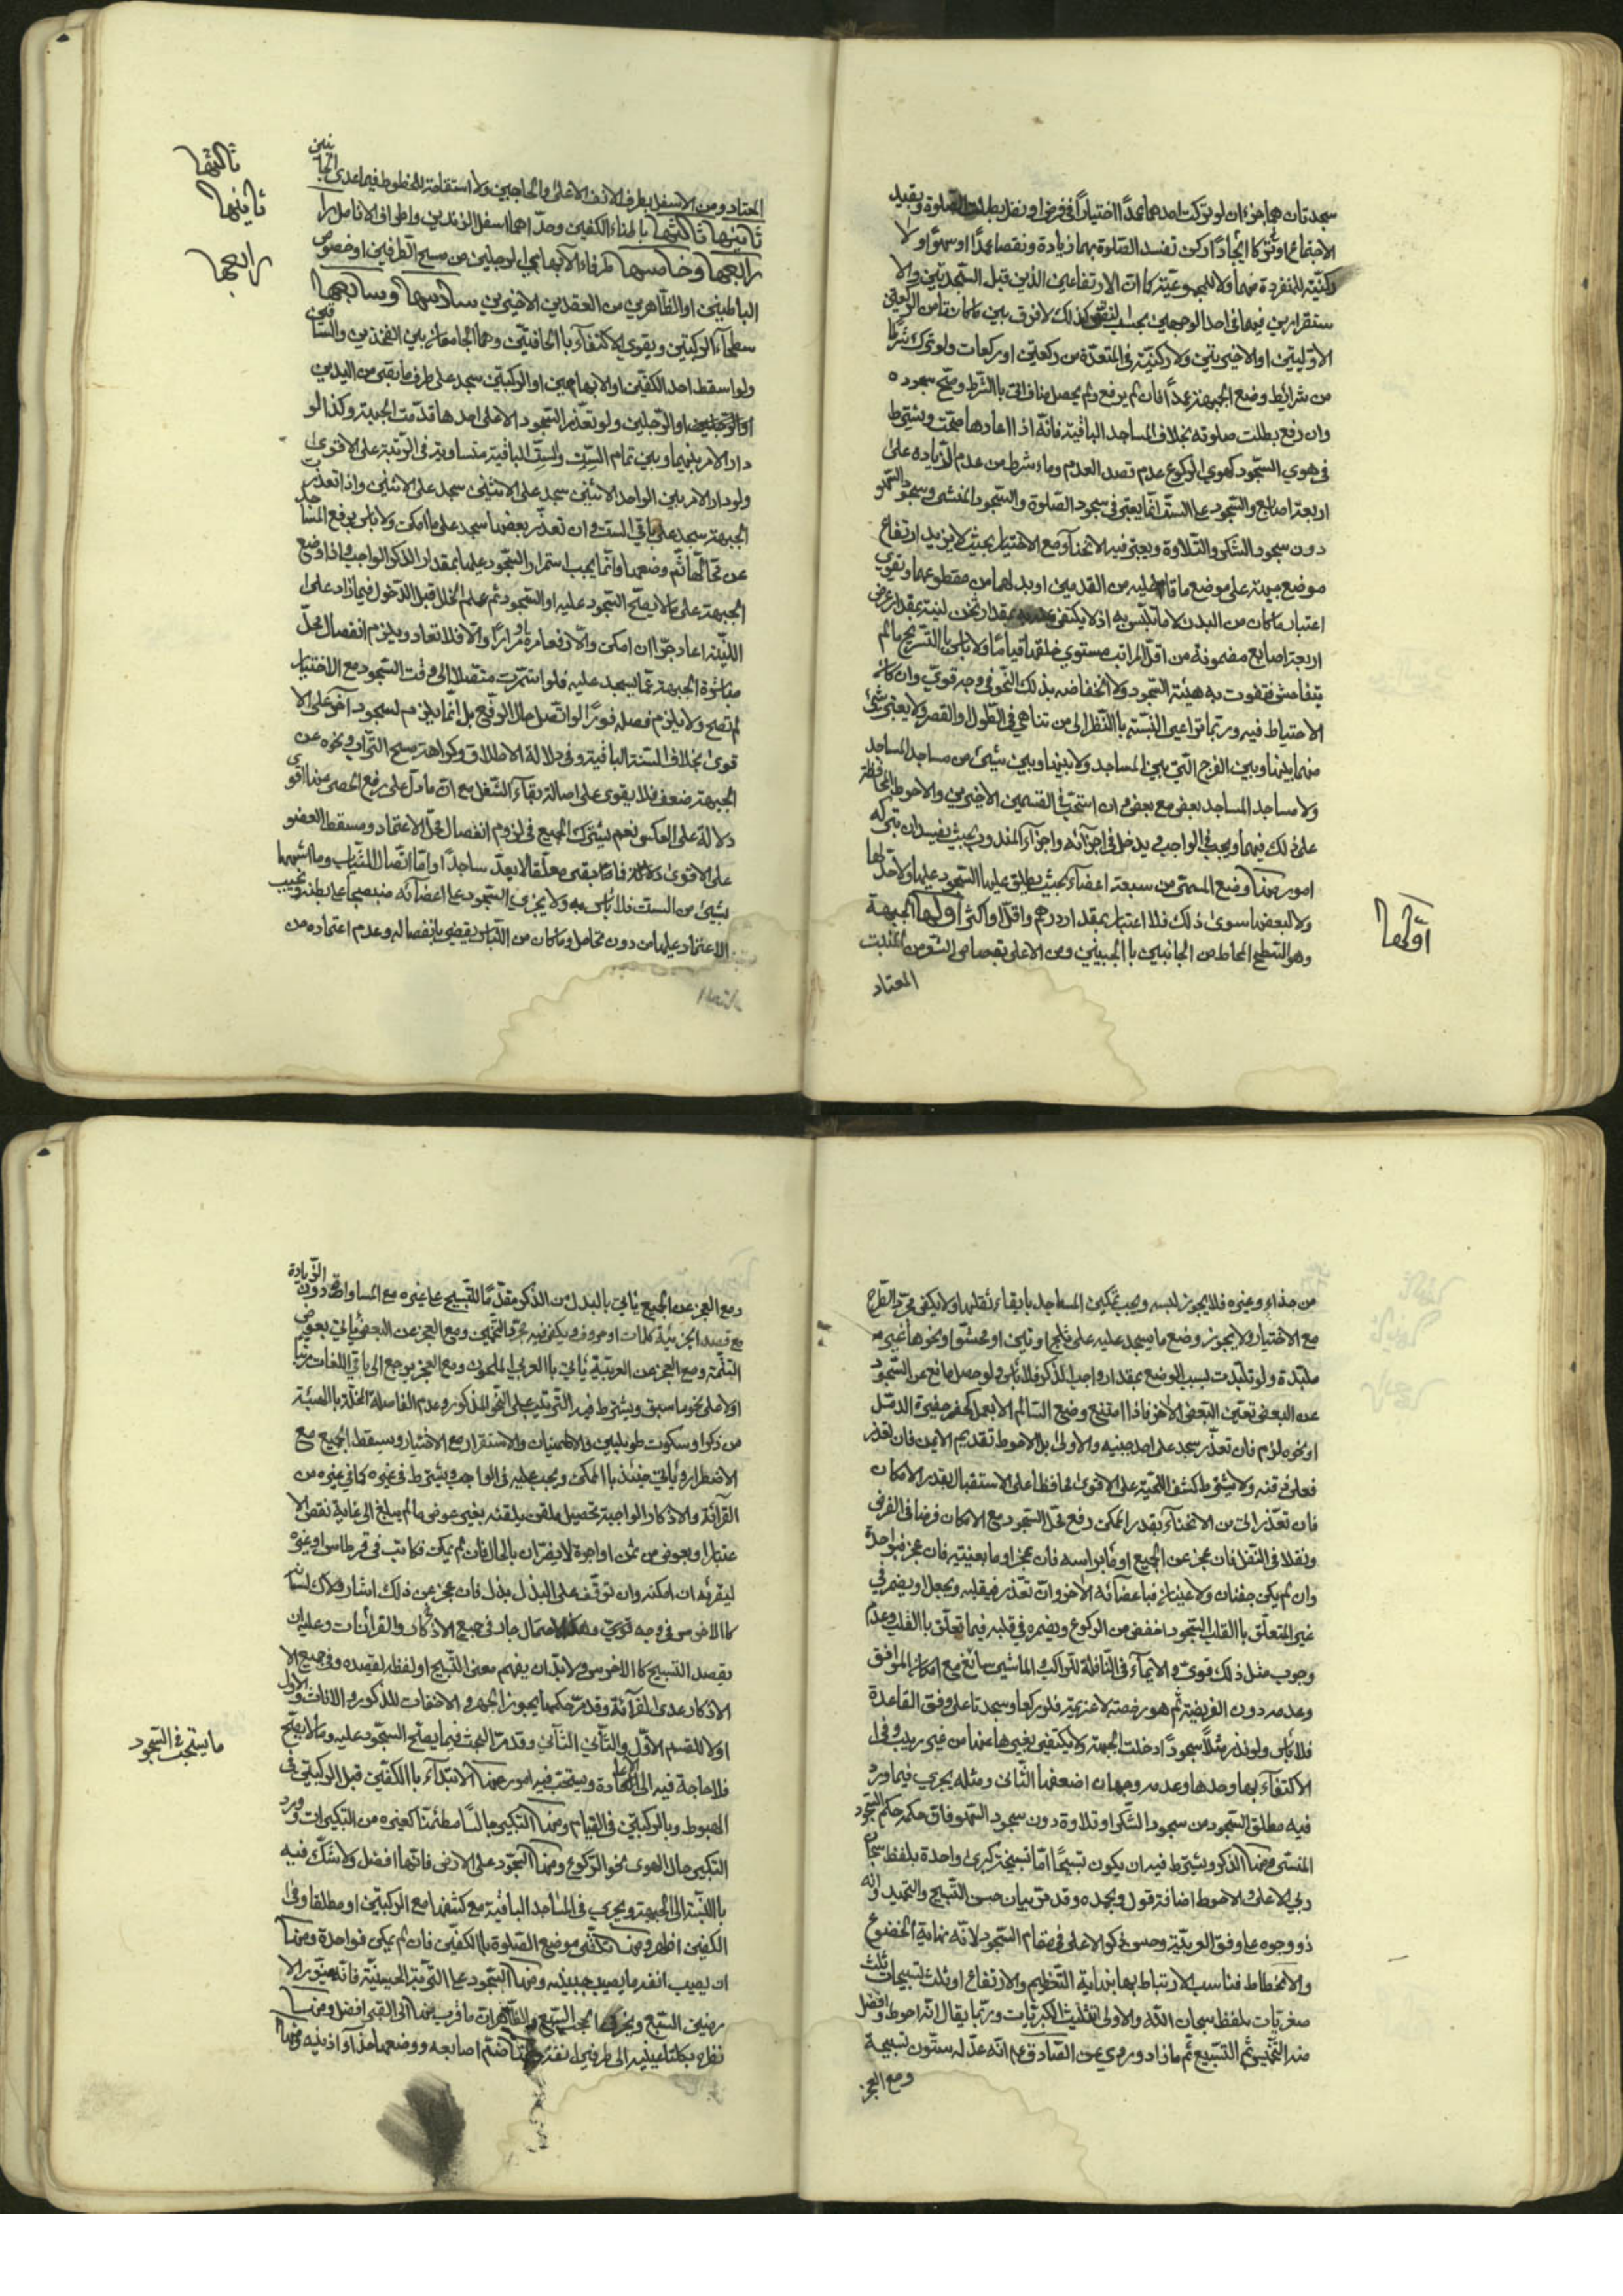 سجدتان هما جزءان لو تركت احدهما عمدًا اختيارًا في فرض او نفل بطلت الصلوة وبقيد
الاجتماع او تركا ايجادًا ركن تفسد الصلوة بهما زيادة ونقصا عمدًا او سهوًا ولا
ركنيّة للمنفردة منهما ولا للمجموعيّة كما انّ الارتفاعين الذين قبل السجدتين والا
ستقرارين فيهما في احد الوجهين بحسب النقص كذلك لا فرق بين ما كانتا من الركعتين
الاوّليتين او الاخيرتين ولا ركنيّة في المتعدّدة من ركعتين او ركعات ولو ترك شرطًا
من شرايط وضع الجبهة عمدًا فان لم يرفع ولم يحصل مناف اتى بالشرط وصحّ سجوده
وان رفع بطلت صلوته بخلاف المساجد الباقية فانّه اذا اعادها صحّت ويشترط
في هوي السّجود كهوي الركوع عدم قصد العدم وما شرط من عدم الزيادة على
اربعة اصابع والسّجود على الستّ انّما يعتبر في سجود الصّلوة والسّجود المنسي وسجود السّهو
دون سجود الشكر والتّلاوة ويعتبر فيه الانحناء مع الاختيار بحيث لا يزيد ارتفاع
موضع جبهته على موضع ما قام عليه من القدمين او بدلهما من مقطوعهما ويقوي
اعتبار ما كان من البدن لا ما تلبّس به اذ لا يكتفى بمقدار ثخن لبنة بمقدار عرض
اربعة اصابع مضمومة من اقلّ المراتب مستوي خلقة قياما ولا باس بالتسريح ما لم
يتفاحش فتفوت به هيئة السّجود ولا انخفاضه بذلك النّحو في وجه قويّ وان كان
الاحتياط فيه وربّما تراعى النّسبة بالنّظر الى من تناهى في الطّول والقصر ولا يعتبر شيء
منهما بينها وبين الفرج التي بين المساجد ولا بينها وبين شيء من مساجد المساجد
ولا مساجد المساجد بعض مع بعض وان استحبّ في القسمين الاخيرين والاحوط المحافظة
على ذلك فيهما ويجب في الواجب ويدخل في اجزائه واجزاء المندوب بحيث يفسدان بتركه
امور منها وضع المسمّى من سبعة اعضاء بحيث يطلق عليها السّجود عليها ولا حدّ لها
ولا لبعضها سوى ذلك فلا اعتبار بمقدار درهم واقلّ او اكثر اولها الجبهة
وهو السّطح المحاط من الجانبين بالجبينين ومن الاعلى بقصاص الشعر من المنبت
المعتاد
اولها
المعتاد ومن الاسفل بطرف الانف الاعلى والحاجبين ولا استقامة للخطوط فيما عدى الجانبين
ثانيها ثالثها بالهناء الكفين وحدّاهما اسفل الزندين واطراف الانامل
رابعها وخامسها طرفا الابهامي الرجلين من مسبح الطّرفين او خصوص
الباطنين او الظّاهرين من العقدين الاخيرين سادسها وسابعها
سطحا الركبتين ويقوي الاكتفاء بالحافتين وهما الجامعان بين الفخذين والسّاقين
ولو سقط احد الكفّين او الابهامين او الركبتين سجد على طرف ما بقي من اليدين
او الرّجلين ولو تعذّر السّجود الا على احدها قدّمت الجبهة وكذا لو
دار الامر بينها وبين تمام السّتّ والسّتّ الباقية متساوية في الرّتبة على الاقوى
ولو دار الامر بين الواحد الاثنين سجد على الاثنين سجد على الاثنين واذا تعذّرت
الجبهة سجد على باقي الستّ وان تعذّر بعضها سجد على ما امكن ولا باس برفع المساجد
عن محالّها ثمّ وضعها وانّما يجب استمرار السّجود عليها بمقدار الذكر الواجب واذا وضع
الجبهة على ما لا يصحّ السّجود عليه او السّجود ثم علم الخلل قبل الدّخول فيما زاد على
اللبنة اعاد جرّا ان امكن والّا رفعا مرّة او مرارًا والّا فلا تعاد ويلزم انفصال محلّ
مباشرة الجبهة عمّا يسجد عليه فلو استمرّت متّصلا الى وقت السّجود مع الاختيار
لم تصح ولا يلزم فصله فورًا لو اتّصل حال الرّفع بل انّما يلزم لسجود آخر على الا
قوى بخلاف الستة الباقية وفي دلالة الاطلاق وكراهة مسح التراب ونحوه عن
الجبهة ضعف فلا يقوى على اصالة بقاء الشّغل مع انّ ما دلّ على رفع الحصى عنها اقوى
دلالة على العكس نعم يشترك الجميع في لزوم انفصال محلّ الاعتماد ومسقط العضو
على الاقوى فانّ ما بقي معلّقا لا يعدّ ساجدًا وامّا اتّصال الثّياب وما اشبهها
بشيء من الستّ فلا باس به ولا يجزي السّجود على اعضائه منبطحا على بطنه ويجب
الاعتماد عليها من دون تحامل وما كان من الثياب يقضي بانفصاله وعدم اعتماده من
ثالثها
ثانيها
رابعها
من حذاء وغيره فلا يجوز لبسه ويجب تمكين المساجد بابقاء ثقلها ولا يكفي مجرّد الطّرح
مع الاختيار ولا يجوز وضع ما يسجد عليه على ثلج او تبن او محشوّ او نحوها غير
ملبدة ولو تلبّدت بسبب الوضع بمقدار واجب الذكر فلا باس ولو حصل مانع عن السّجود
عن البعض تعيّن البعض الآخر فاذا امتنع وضع السّالم الّا بعمل كحفر حفيرة الدمّل
او نحوه لزم فان تعذّر سجد على احد جبينيه والاولى بل الاحوط تقديم الايمن فان تعذّر
فعلى ذقنه ولا يشترط كشف اللحية على الاقوى محافظا على الاستقبال بقدر الامكان
فان تعذّر اتى من الانحناء بقدر الممكن رفع محلّ السّجود مع الامكان فرضا في الفرض
ونفلا في النّفل فان عجز عن الجميع اومأ براسه فان عجز اومأ بعينيه فان عجز فبواحدة
وان لم يكن جفنان ولا عينان فباعضائه الاخر وان تعذّر فبقلبه ويجعل ويضمر في
غير المتعلّق بالقلب السّجود اخفض من الركوع ويضمره في قلبه فيما تعلّق بالقلب وعدم
وجوب مثل ذلك قويّ والايماء في النّافلة للراكب والماشي سائغ مع امكان الموافق
وعدمه دون الفريضة ثم هو رخصة لا عزيمة فلو ركعا وسجدتا على وفق القاعدة
فلا باس ولو نذر مثلاً سجودًا دخلت الجبهة ولا يكتفى بغيرها عنها من غير ريب وفي ا
الاكتفاء بها وحدها وعدمه وجهان اضعفها الثّاني ومثله يجري فيما ورد
فيه مطلق السّجود من سجود الشّكر او تلاوة دون سجود السّهو فانّ حكمه حكم السّجود
المنسي ومنها الذكر ويشترط فيه ان يكون تسبيحًا امّا تسبيحة كبرى واحدة بلفظ سبحان
ربي الاعلى والاحوط اضافة قول وبحمده وقد مرّ بيان حسن التّسبيح والتحميد وانّه
ذو وجوه على وفق الروية وحسن ذكر الاعلى في مقام السّجود لانّه نهاية الخضوع
والانحطاط فناسب الارتباط بها بنهاية التّعظيم والارتفاع او ثلث تسبيحات
صغريات بلفظ سبحان الله والاولى تثليث الكبريات وربّما يقال انّه احوط وافضل
منه التّخميس ثمّ التسبيع ثم ما زاد وروي عن الصّادق ع انّه عدّ له ستّون تسبيحة
ومع العجز
ومع العجز عن الجميع ياتي بالبدل من الذكر مقدّمًا للتسبيح على غيره مع المساواة دون الزّيادة
مع قصد الجزئيّة كلمات او حروف ويكفي فيه مجرّد التّخمين ومع العجز عن البعض ياتي بعوض
التّتمّة ومع العجز عن العربيّة ياتي بالعربي الملحون ومع العجز يرجع الى باقي اللغات مرتبا
اولا على نحو ما سبق ويشترط فيه التّرتيب على النّحو المذكور وعدم الفاصلة المخلّة بالهيئة
من ذكر او سكوت طويلين والاطمينان والاستقرار مع الاختيار ويسقط الجميع مع
الاضطرار وياتي حينئذ بالممكن ويجب عليه في الواجب ويشترط في غيره كما في غيره من
القرائة والاذكار الواجبة تحصيل ملقن يلقنه بغير عوض ما لم يبلغ الى غاية نقص الا
عتبار او بعوض من ثمن او اجرة لا يضرّان بالحال فان لم يمكن فكاتب في قرطاس او غيره
ليقرئه ان امكنه وان توقّف على البذل بذل فان عجز عن ذلك اشار ولاك لسانه
كالاخرس في وجه قويّ وهذا الاحتمال جار في جميع الاذكار والقرائات وعليه ان
يقصد التسبيح كالاخرس ولا بدّ ان يفهم معنى التّسبيح او لفظه ليقصده وفي جميع الا
الاذكار عدى القرائة وقد مرّ حكمها يجوز الجهر والاخفات للذكور والاناث والاولى
اولا للقسم الاوّل والثّاني الثّاني وقد مرّ البحث فيما يصحّ السّجود عليه وما لا يصحّ
فلا حاجة فيه الى الاعادة ويستحبّ فيه امور منها الابتداء بالكفّين قبل الركبتين في
الهبوط وبالركبتين في القيام ومنها التكبير جالسًا مطمئنّا كغيره من التكبيرات وورد
التكبير حال الهوى نحو الركوع ومنها السّجود على الارض فانّها افضل ولا شكّ فيه
بالنّسبة الى الجبهة ويجري في المساجد الباقية مع كشفها مع الركبتين او مطلقا وفي
الكفّين اظهر ومنها تلقّي موضع الصّلوة بالكفّين فان لم يمكن فواحدة ومنها
ان يصيب انفه ما يصيب جبينه ومنها السّجود على التّربة الحسينيّة فانّه ينوّر الا
رضين السّبع ويخرق الحجب السّبع والظّاهر انّ ما قرب منها الى القبر افضل ومنها
نظره بكلتا عينيه الى طرفي انفه ومنها ضمّ اصابعه ووضعها حذاء اذنيه ومنها
ما يستحبّ في السّجود